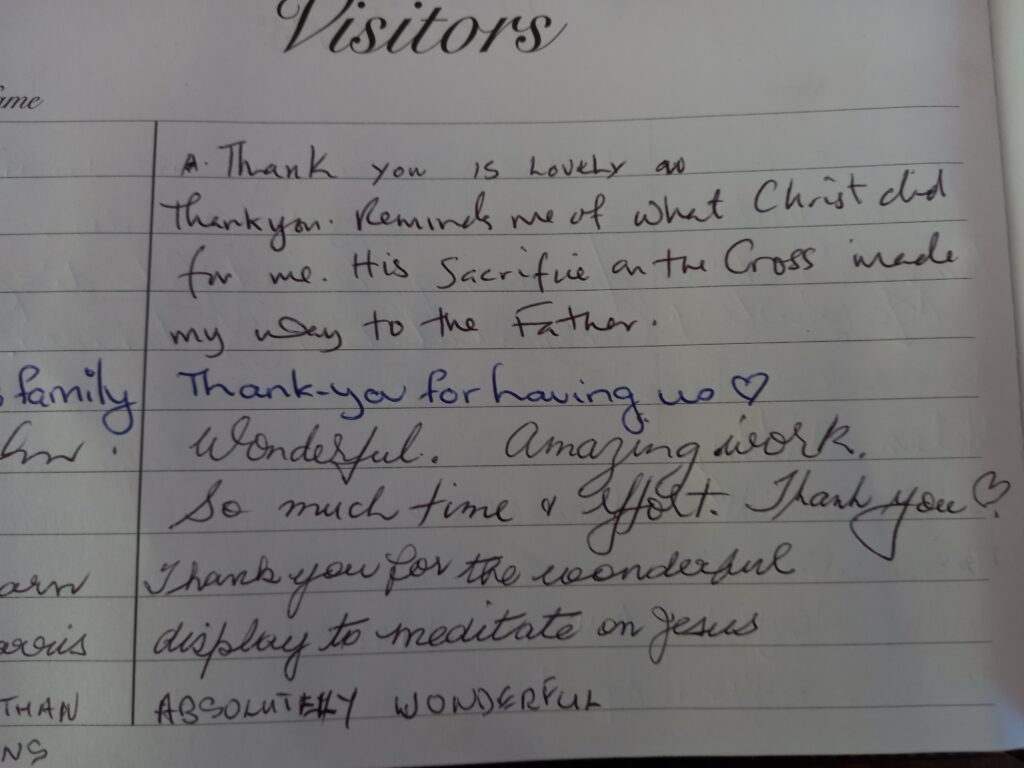 Visitors
ame
A. Thank you is Lovely so
Thankyou. Reminds me of what Christ did
for me. His Sacrifice on the Cross made
my way to the Father.
family Thank-you for having us ♡
Wonderful. Amazing work.
So much time & effort. Thank you ♡.
arn Thank you for the wonderful
arris display to meditate on Jesus
THAN ABSOLUTELY WONDERFUL
NS